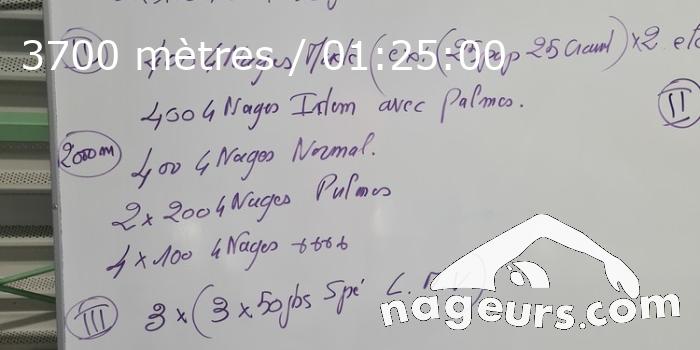 3700 mètres / 01:25:00
400 4 Nages (25 pap 25 Crawl) x2 etc
400 4 Nages Idem avec Palmes.
II
2000m
400 4 Nages Normal.
2 x 200 4 Nages Palmes
4 x 100 4 Nages ++++
III 3 x (3 x 50 jbs Spé
nageurs.com